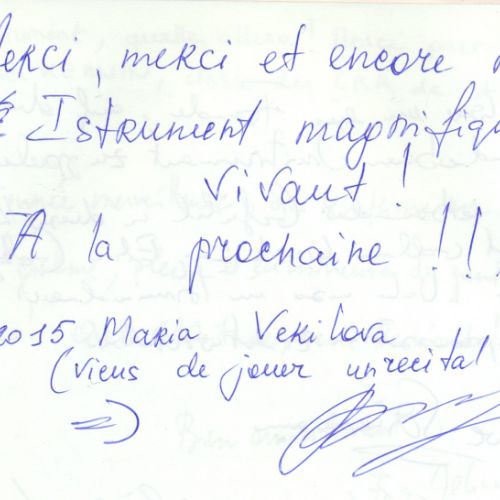 Merci, merci et encore
Istrument magnifiqu
vivant!
A la prochaine!!!
2015 Maria Vekilova
(viens de jouer un recital
=)